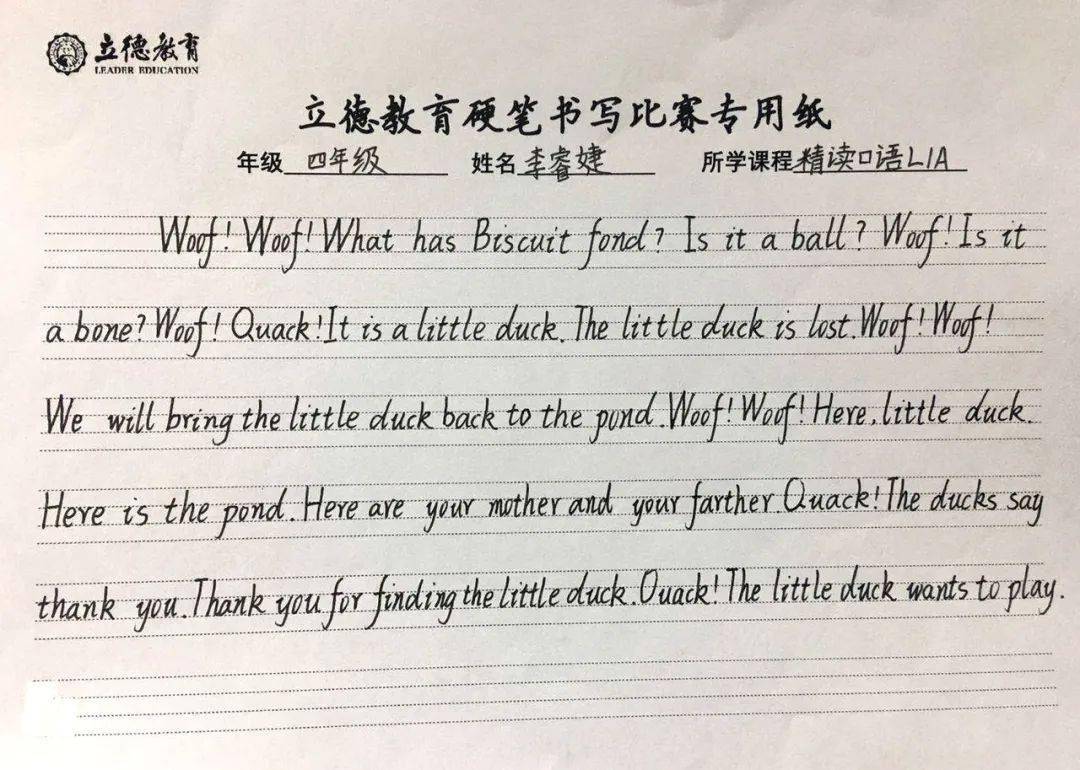 立德教育
LEADER EDUCATION
立德教育硬笔书写比赛专用纸
年级 四年级 姓名 李睿婕 所学课程 精读口语L1A
Woof! Woof! What has Biscuit fond? Is it a ball? Woof! Is it
a bone? Woof! Quack! It is a little duck. The little duck is lost. Woof! Woof!
We will bring the little duck back to the pond. Woof! Woof! Here, little duck.
Here is the pond. Here are your mother and your farther. Quack! The ducks say
thank you. Thank you for finding the little duck. Quack! The little duck wants to play.